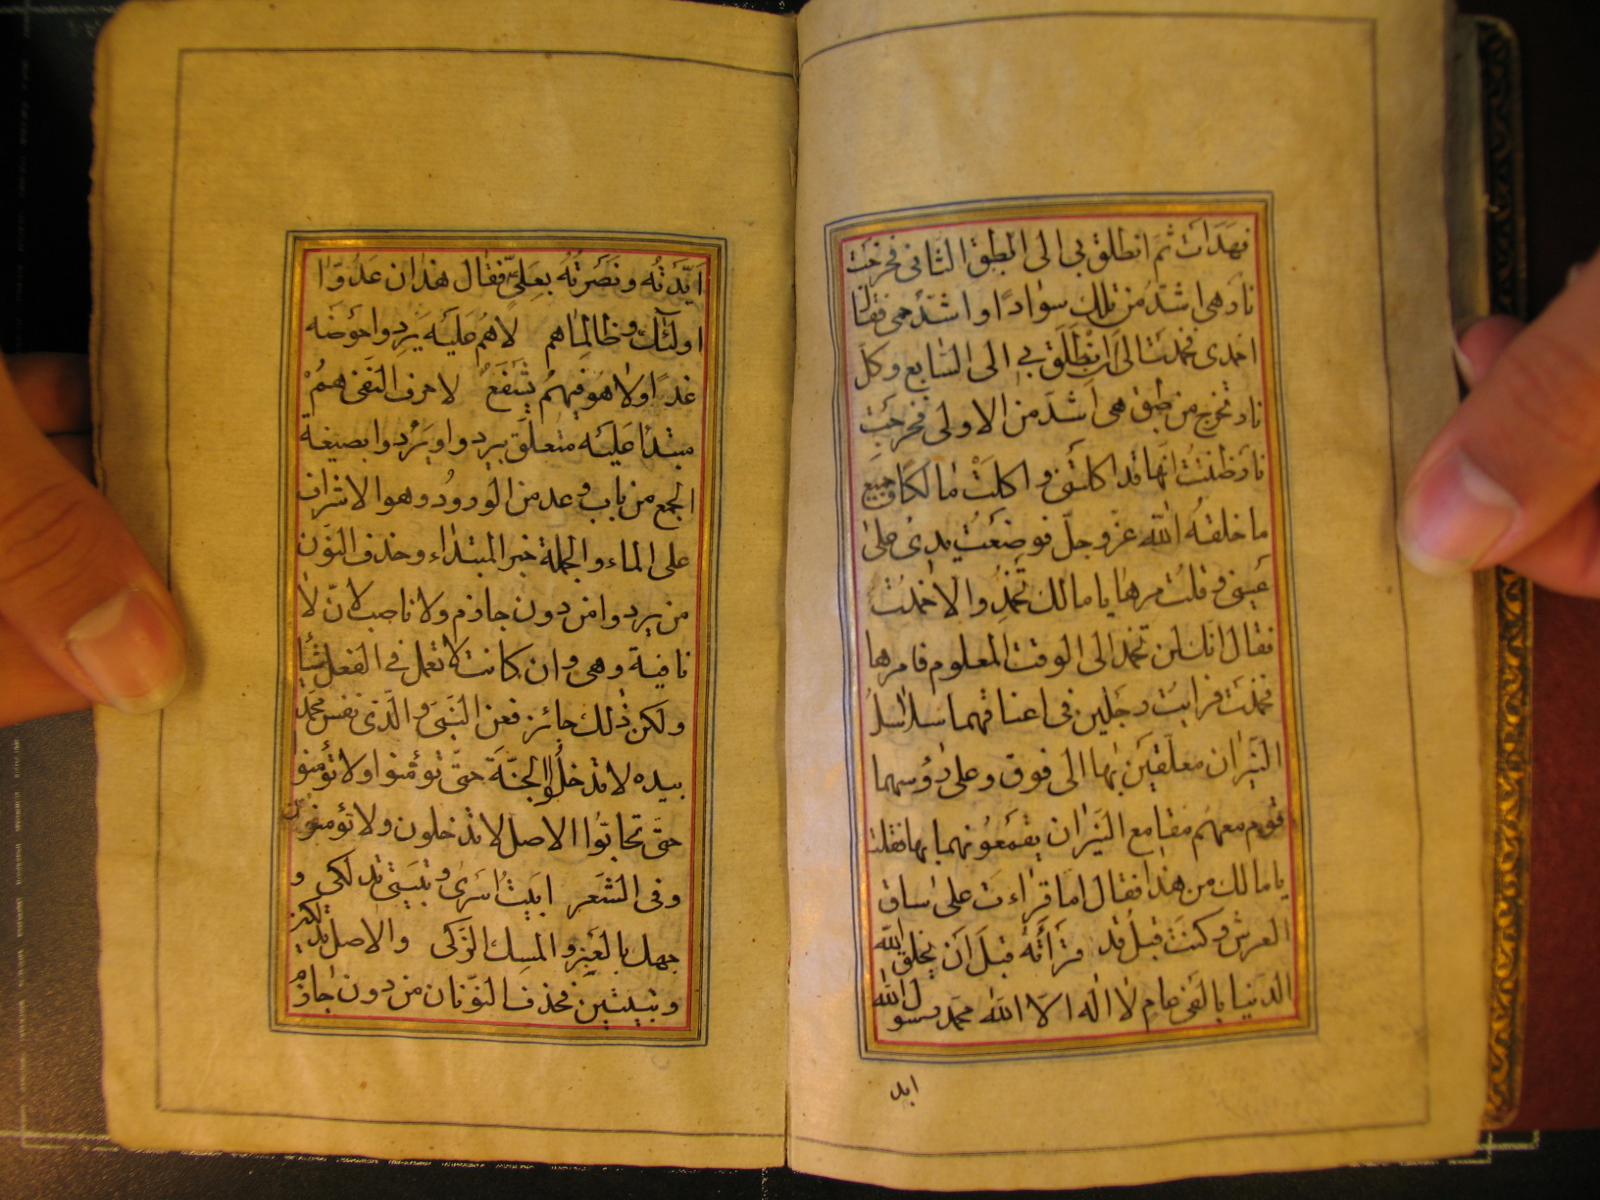 فهدات ثم انطلق بى الى المطبق الثانى فخرجت
نار هى اشد من تلك سوادا و اشد حمى فقال
اخمدى فخمدت الى ان انطلق بى الى السابع و كل
نار تخرج من طبق هى اشد من الاولى فخرجت
نار ظننت انها قد اكلتنى و اكلت مالكا و جميع
ما خلقه الله عز و جل فوضعت يدى على
عينى و قلت مرها يا مالك تخمد و الا خمدت
فقال انك لن تخمد الى الوقت المعلوم فامرها
فخمدت فرايت رجلين فى اعناقهما سلاسل
النيران معلقين بها الى فوق و على رؤسهما
قوم معهم مقامع النيران يقمعونهما بها فقلت
يا مالك من هذا فقال اما قراءت على ساق
العرش و كنت قبل قد قرأته قبل ان يخلق الله
الدنيا بالفى عام لا اله الا الله محمد رسول الله
ايد
ايّدته و نصرته بعلىّ فقال هذان عدوّا
اولئك و ظالماهم لاهم عليه يردوا حوضه
غدا و لا هو فيهم يشفع لا حرف النفى هم
مبتدا عليه متعلق بيردوا و يردوا بصيغة
الجمع من باب وعد من الورود و هو الاشراف
على الماء و الجملة خبر المبتداء و حذف النون
من يردوا من دون جازم و لا ناصب لانّ لا
نافية و هى و ان كانت لا تعمل فى الفعل شيأ
و لكن ذلك جائز فعن النبى و الذى نفس محمد
بيده لا تدخلوا الجنة حتى تؤمنوا و لا تؤمنو
حتى تحابّوا الاصل لا تدخلون و لا تؤمنون
و فى الشعر ابيت اسرى و تبيتى تدلكى و
جهك بالعنبر و المسك الزكى و الاصل تدلكين
و تبيتين فحذف النونان من دون جازم